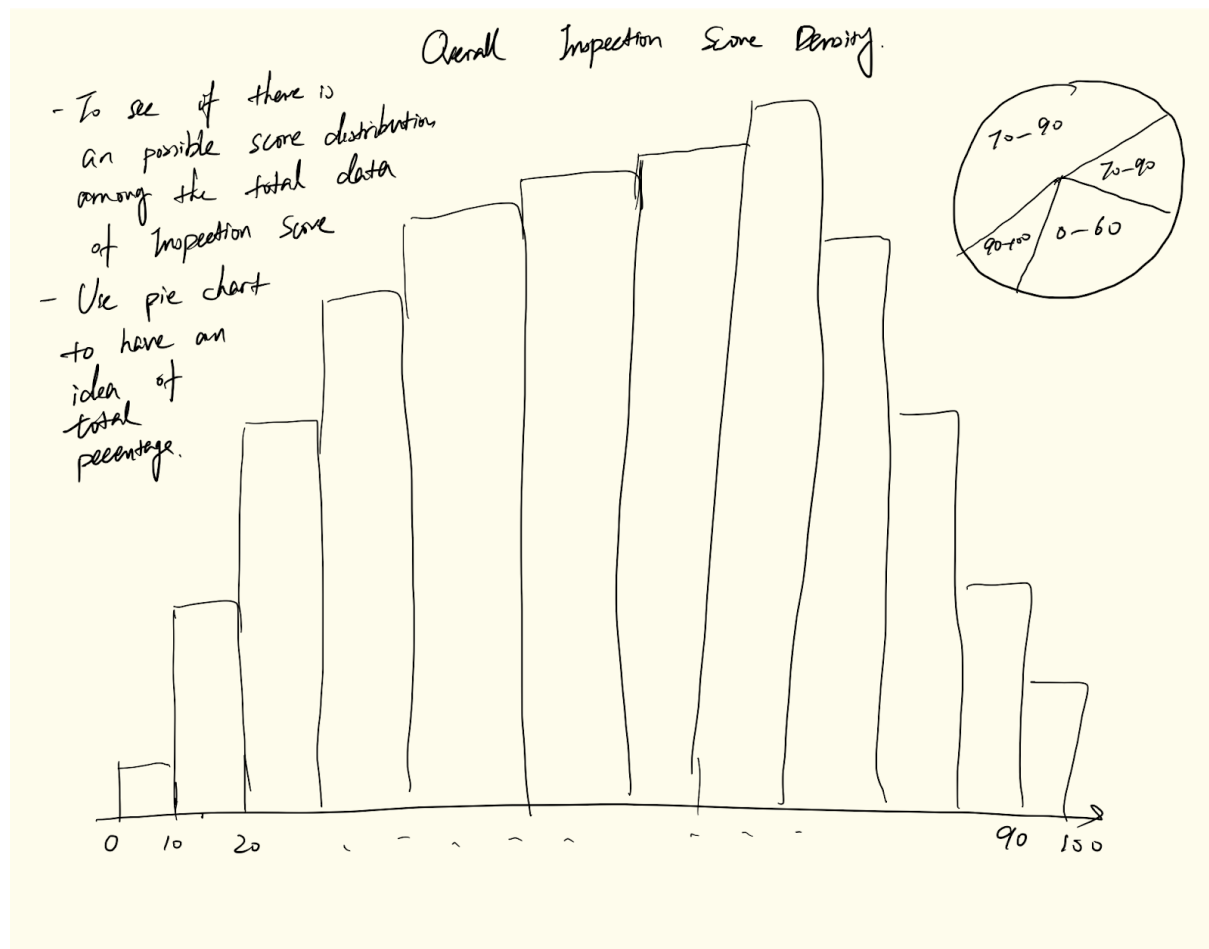 Overall Inspection Score Density.
- To see if there is
an possible score distribution
among the total data
of Inspection Score
- Use pie chart
to have an
idea of
total
pecentage.
70-90
70-90
90-100
0-60
0 10 20 90 100